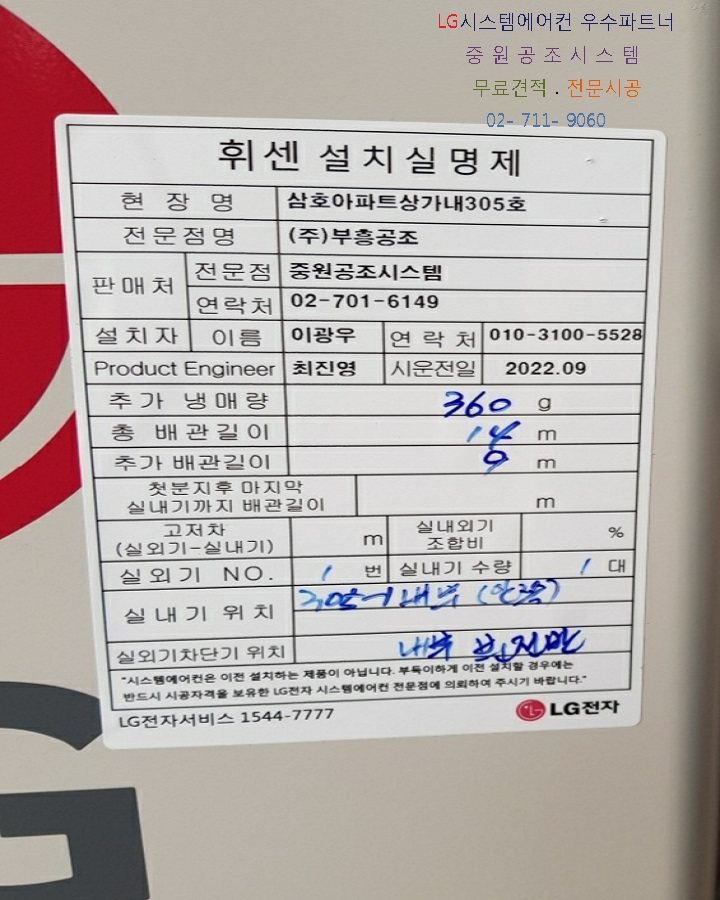 LG시스템에어컨 우수파트너
중 원 공 조 시 스 템
무료견적 . 전문시공
02- 711- 9060
휘센 설치실명제
현 장 명 삼호아파트상가내305호
전문점명 (주)부흥공조
판매처 전문점 중원공조시스템
연락처 02-701-6149
설치자 이름 이광우 연락처 010-3100-5528
Product Engineer 최진영 시운전일 2022.09
추가 냉매량 360 g
총 배관길이 14 m
추가 배관길이 9 m
첫분지후 마지막
실내기까지 배관길이 m
고저차
(실외기-실내기) m 실내외기
조합비 %
실외기 NO. 1 번 실내기 수량 1 대
실내기 위치 내부
실외기차단기 위치 내부
"시스템에어컨은 이전 설치하는 제품이 아닙니다. 부득이하게 이전 설치할 경우에는
반드시 시공자격을 보유한 LG전자 시스템에어컨 전문점에 의뢰하여 주시기 바랍니다."
LG전자서비스 1544-7777 LG전자